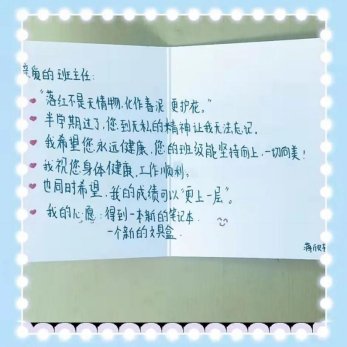 亲爱的班主任:
"落红不是无情物,化作春泥更护花。"
半学期过了,您到无私的精神让我无法忘记。
我希望您永远健康,您的班级能坚持向上,一切向美!
我祝您身体健康,工作顺利,
也同时希望,我的成绩可以"更上一层"。
我的心愿:得到一本新的笔记本
一个新的文具盒